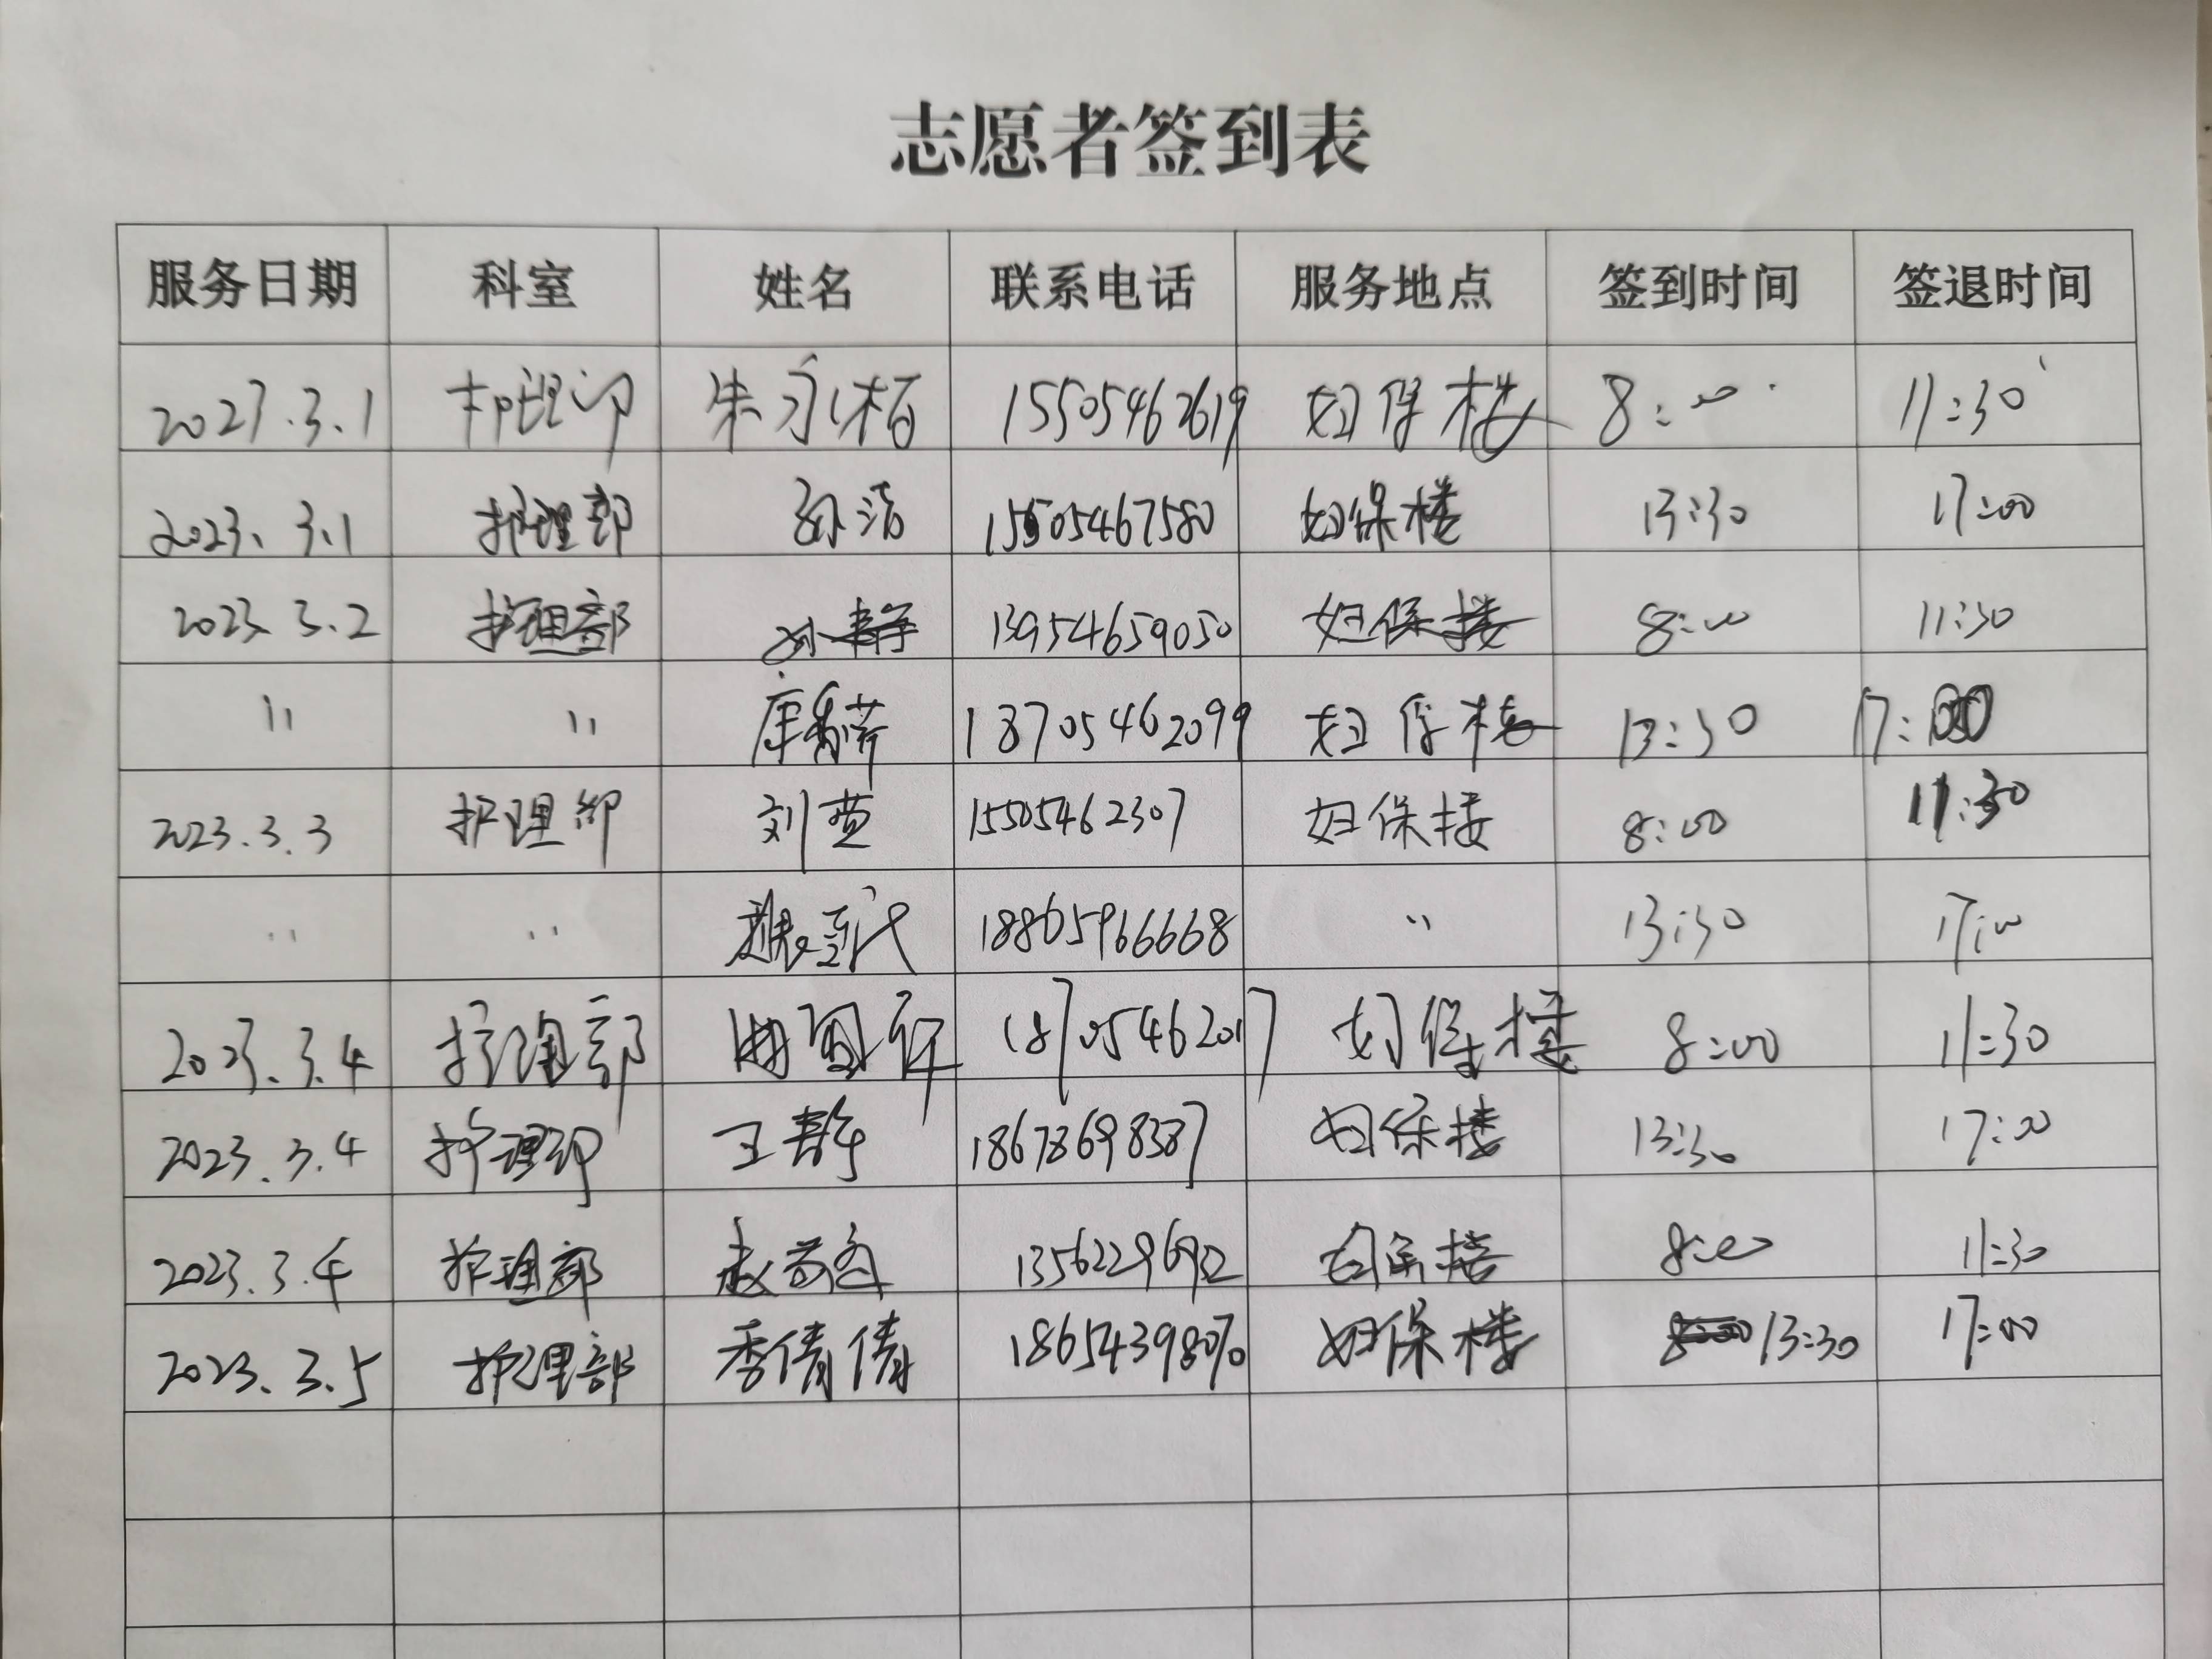 志愿者签到表
服务日期 科室 姓名 联系电话 服务地点 签到时间 签退时间
2023.3.1 护理部 朱永梅 15505462619 妇保楼 8:00 11:30
2023.3.1 护理部 孙洁 15505467580 妇保楼 13:30 17:00
2023.3.2 护理部 孙静 13954659050 妇保楼 8:00 11:30
" " 18705462099 妇保楼 13:30 17:00
2023.3.3 护理部 刘莹 15505462307 妇保楼 8:00 11:30
" " 18865966668 " 13:30 17:00
2023.3.4 护理部 18705462017 妇保楼 8:00 11:30
2023.3.4 护理部 王静 18678698387 妇保楼 13:30 17:00
2023.3.4 护理部 妇保楼 8:00 11:30
2023.3.5 护理部 季倩倩 妇保楼 13:30 17:00